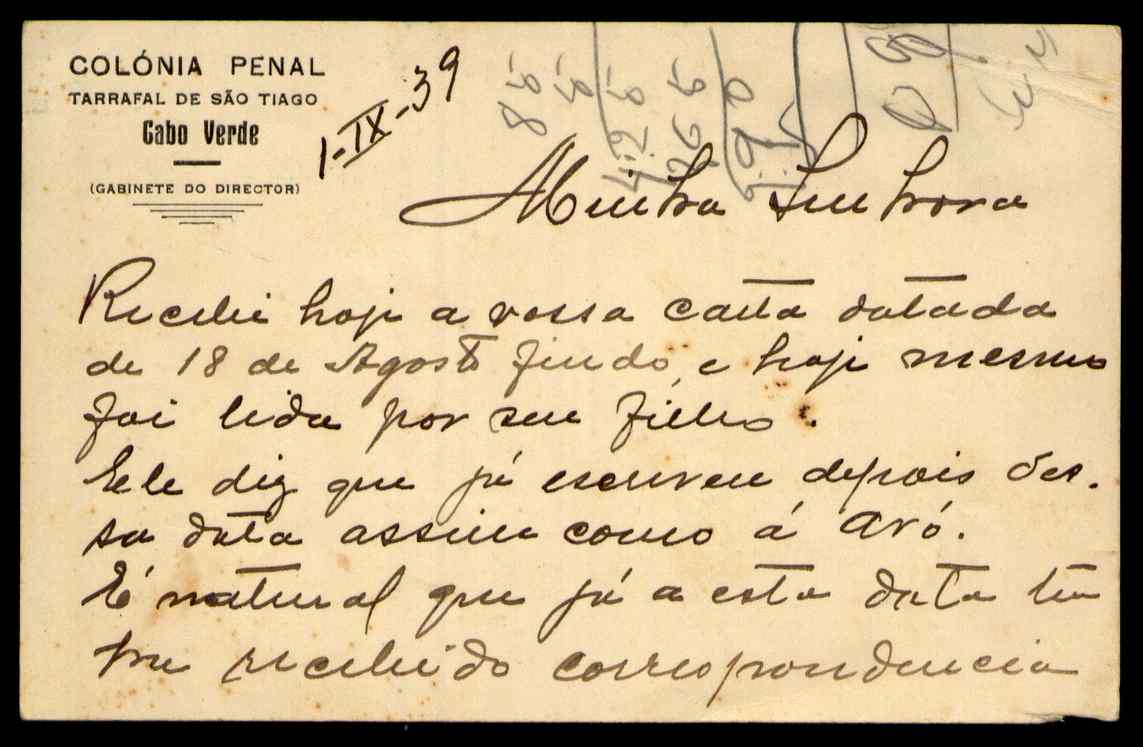 COLÓNIA PENAL
TARRAFAL DE SÃO TIAGO
Cabo Verde
(GABINETE DO DIRECTOR)
1-IX-39
Minha Senhora
Recebi hoje a vossa carta datada
de 18 de Agosto findo, e hoje mesmo
foi lida por seu filho.
Ele diz que já escreveu depois des-
sa data assim como á avó.
É natural que já a esta data te-
nha recebido correspondencia